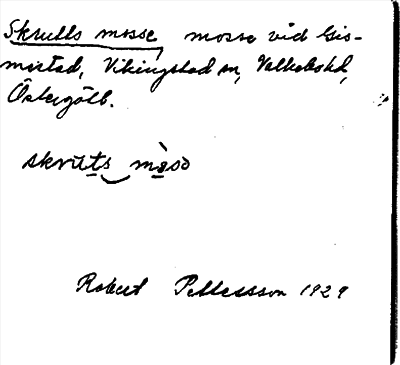 Skrulls mosse, mosse vid Gis-
mestad, Vikingstad sn, Valkebohd,
Östergötl.
skruts måsə
Robert Pettersson 1929